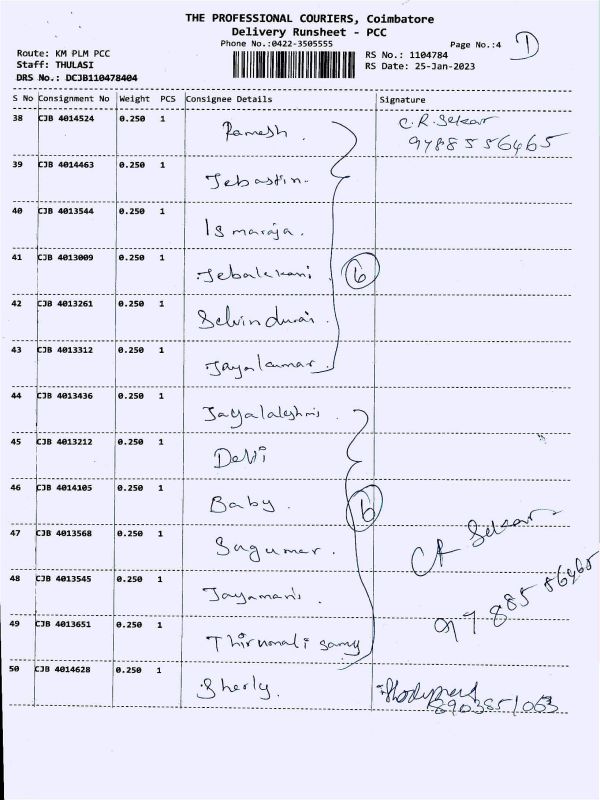 THE PROFESSIONAL COURIERS, Coimbatore
Delivery Runsheet - PCC
Phone No.:0422-3505555
Page No.:4
Route: KM PLM PCC
Staff: THULASI
DRS No.: DCJB110478404
RS No.: 1104784
RS Date: 25-Jan-2023
S No Consignment No Weight PCS Consignee Details Signature
38 CJB 4014524 0.250 1 Ramesh. C.R. Sekar
9788556465
39 CJB 4014463 0.250 1 Jebastin.
40 CJB 4013544 0.250 1 Ismaraja.
41 CJB 4013009 0.250 1 Jebalekani 6
42 CJB 4013261 0.250 1 Selvindurai.
43 CJB 4013312 0.250 1 Jayakumar.
44 CJB 4013436 0.250 1 Jayalakshmi.
45 CJB 4013212 0.250 1 Devi
46 CJB 4014105 0.250 1 Baby. 6
47 CJB 4013568 0.250 1 Sugumar. CR Sekar
48 CJB 4013545 0.250 1 Jayamani. 9788556465
49 CJB 4013651 0.250 1 Thirumalisamy
50 CJB 4014628 0.250 1 Sherly.
8903851063